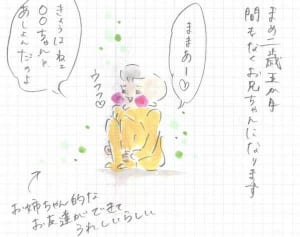 まめ二歳五か月
間もなくお兄ちゃんになります
ままあー♡
ウフフ♡
きょうはねェ
〇〇ちゃんと
あしょんだのよ
お姉ちゃん的な
お友達ができて
うれしいらしい